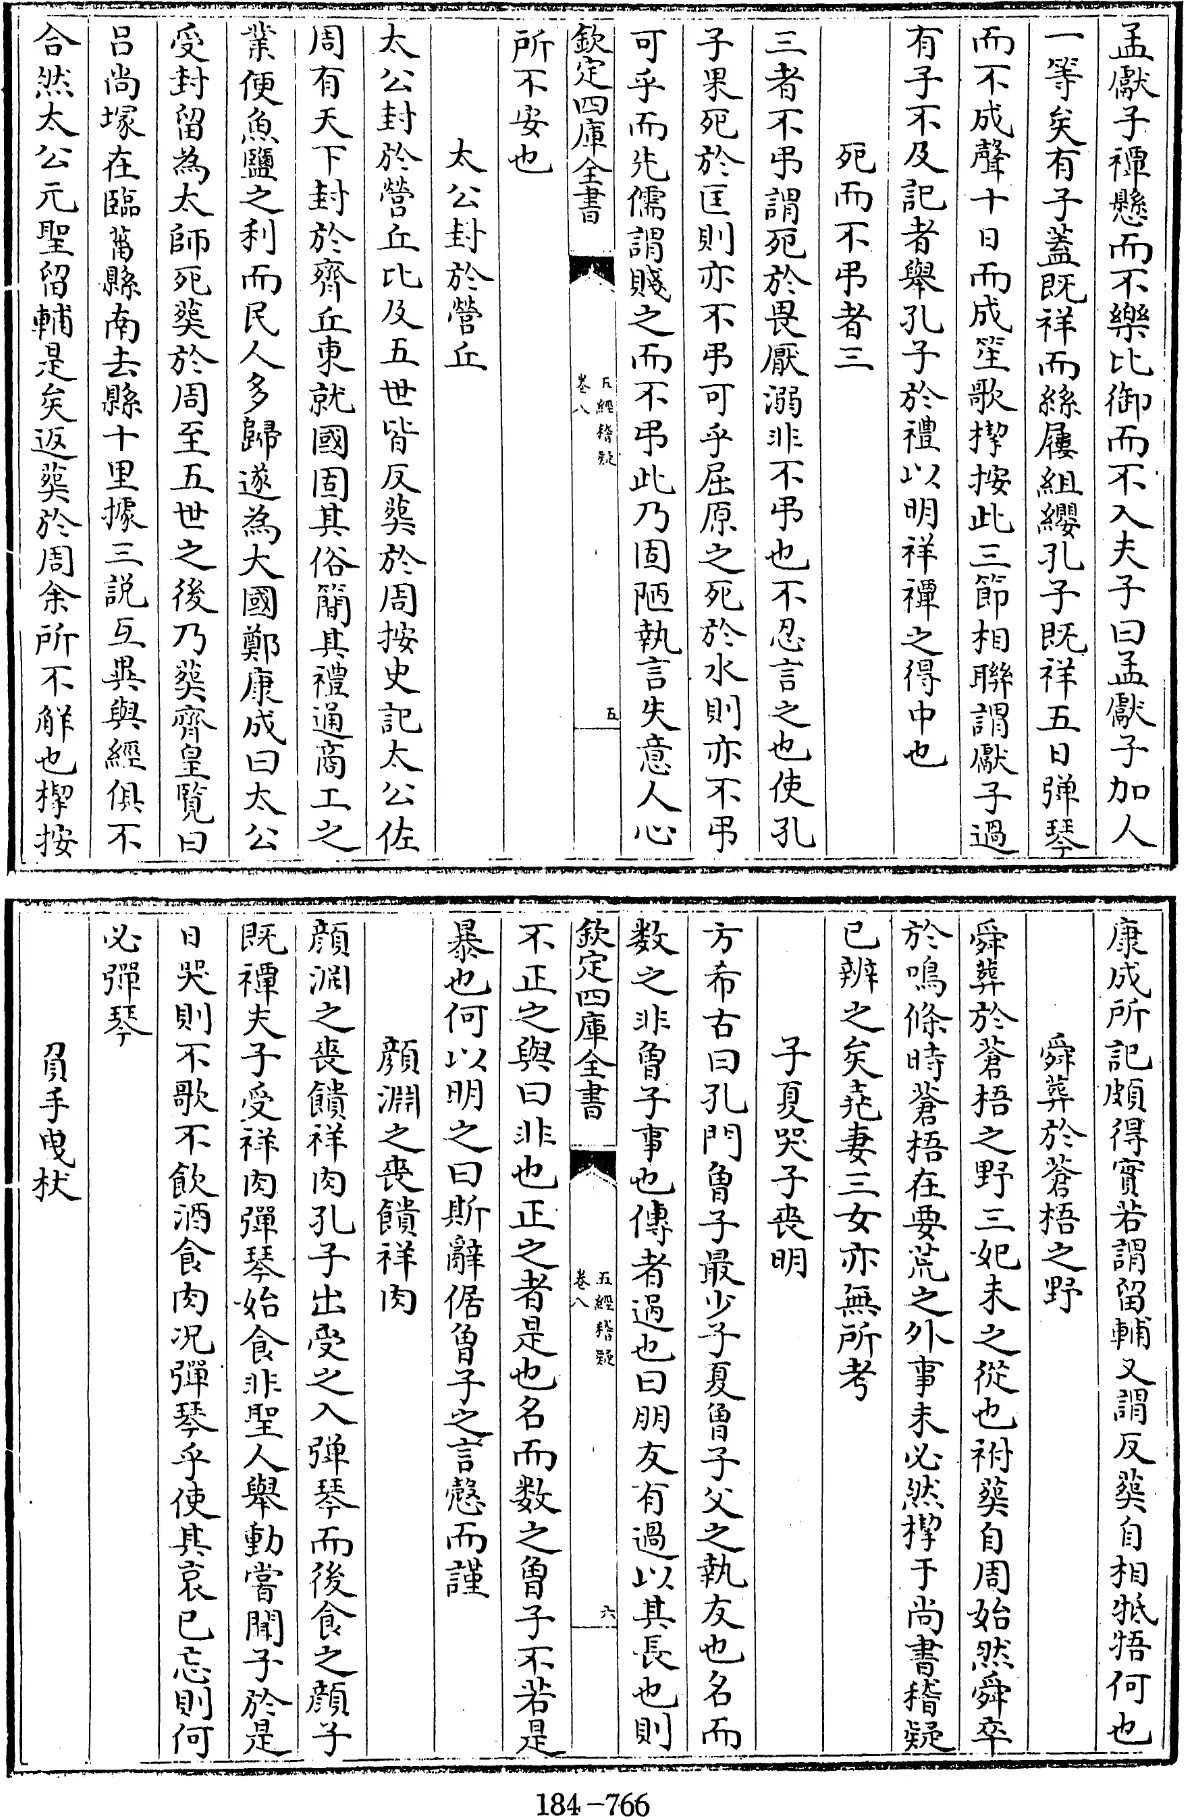 孟獻子禫懸而不樂比御而不入夫子曰孟獻子加人
一等矣有子蓋既祥而絲屨組纓孔子既祥五日彈琴
而不成聲十日而成笙歌㮮按此三節相聯謂獻子過
有子不及記者舉孔子於禮以明祥禫之得中也
死而不弔者三
三者不弔謂死於畏厭溺非不弔也不忍言之也使孔
子果死於匡則亦不弔可乎屈原之死於水則亦不弔
可乎而先儒謂賤之而不弔此乃固陋執言失意人心
欽定四庫全書
五經稽疑
卷八
五
所不安也
太公封於營丘
太公封於營丘比及五世皆反塟於周按史記太公佐
周有天下封於齊丘東就國固其俗簡其禮通商工之
業便魚鹽之利而民人多歸遂為大國鄭康成曰太公
受封留為太師死塟於周至五世之後乃塟齊皇覽曰
呂尚塚在臨菑縣南去縣十里據三説互異與經俱不
合然太公元聖留輔是矣返塟於周余所不解也㮮按
康成所記頗得實若謂留輔又謂反塟自相牴牾何也
舜葬於蒼梧之野
舜葬於蒼梧之野三妃未之從也祔塟自周始然舜卒
於鳴條時蒼梧在要荒之外事未必然㮮于尚書稽疑
已辨之矣堯妻三女亦無所考
子夏哭子喪明
方希古曰孔門曾子最少子夏曾子父之執友也名而
数之非曾子事也傳者過也曰朋友有過以其長也則
欽定四庫全書
五經稽疑
卷八
六
不正之與曰非也正之者是也名而数之曾子不若是
暴也何以明之曰斯辭倨曾子之言慤而謹
顔淵之喪饋祥肉
顔淵之喪饋祥肉孔子出受之入彈琴而後食之顔子
既禫夫子受祥肉彈琴始食非聖人舉動嘗聞子於是
日哭則不歌不飲酒食肉况彈琴乎使其哀已忘則何
必彈琴
負手曳杖
184-766